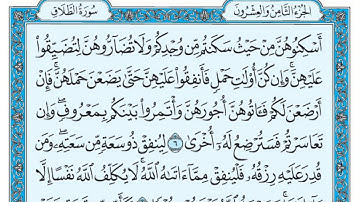 الجزء الثامن والعشرون سورة الطلاق
أَسْكِنُوهُنَّ مِنْ حَيْثُ سَكَنتُم مِّن وُجْدِكُمْ وَلَا تُضَآرُّوهُنَّ لِتُضَيِّقُوا۟
عَلَيْهِنَّ ۚ وَإِن كُنَّ أُو۟لَـٰتِ حَمْلٍ فَأَنفِقُوا۟ عَلَيْهِنَّ حَتَّىٰ يَضَعْنَ حَمْلَهُنَّ ۚ فَإِنْ
أَرْضَعْنَ لَكُمْ فَـَٔاتُوهُنَّ أُجُورَهُنَّ ۖ وَأْتَمِرُوا۟ بَيْنَكُم بِمَعْرُوفٍ ۖ وَإِن
تَعَاسَرْتُمْ فَسَتُرْضِعُ لَهُۥٓ أُخْرَىٰ ٦ لِيُنفِقْ ذُو سَعَةٍ مِّن سَعَتِهِۦ ۖ وَمَن
قُدِرَ عَلَيْهِ رِزْقُهُۥ فَلْيُنفِقْ مِمَّآ ءَاتَىٰهُ ٱللَّهُ ۚ لَا يُكَلِّفُ ٱللَّهُ نَفْسًا إِلَّا